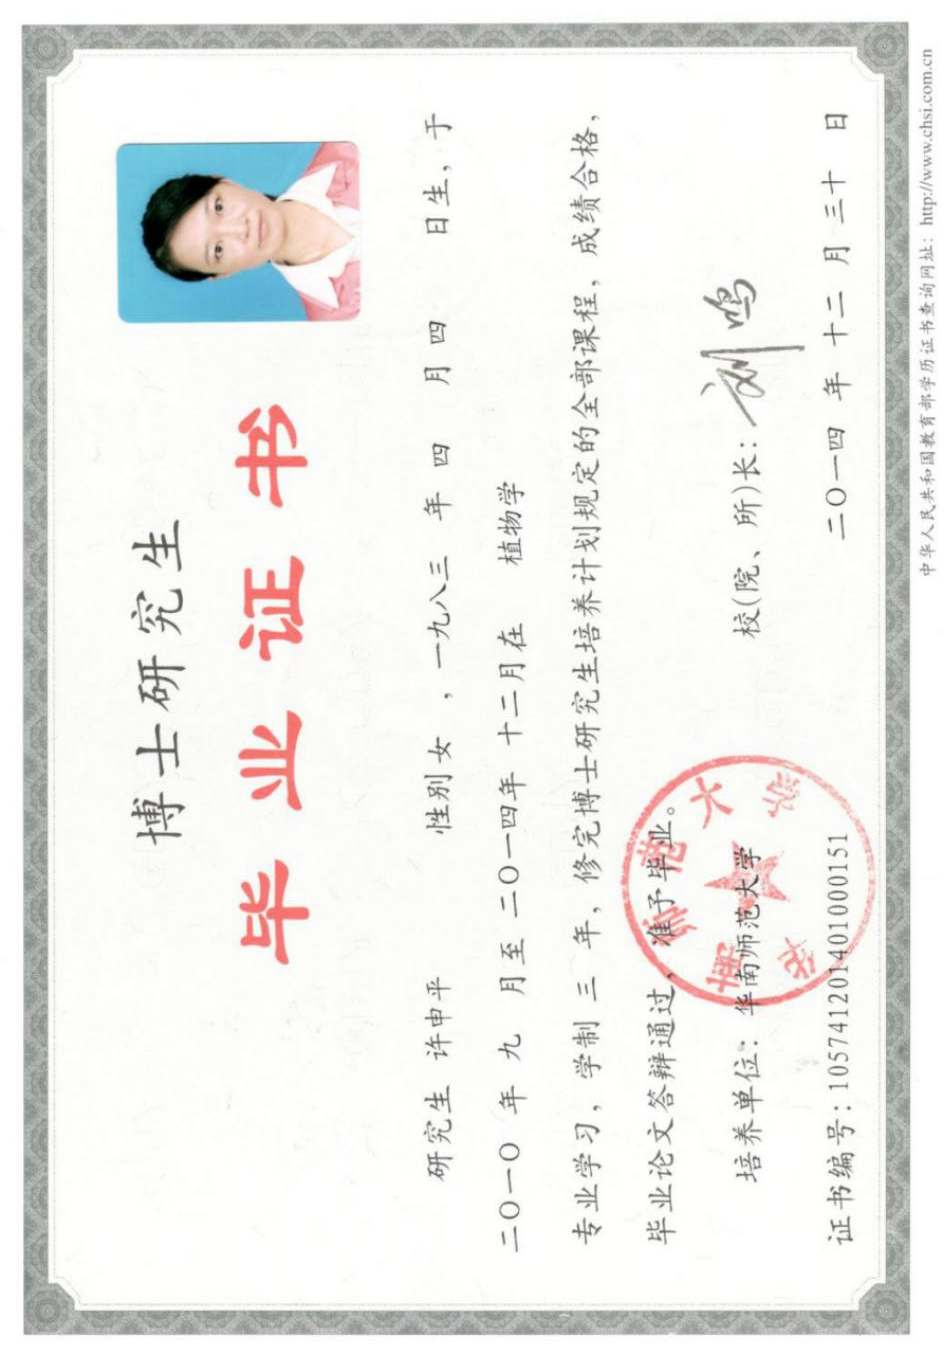 博士研究生
毕业证书
研究生 许申平 性别 女 ，一九八三 年 四 月 四 日生，于
二〇一〇 年 九 月至 二〇一四年 十二月在 植物学
专业学习，学制 三 年，修完博士研究生培养计划规定的全部课程，成绩合格，
毕业论文答辩通过，准予毕业。
培养单位：华南师范大学 校(院、所)长：刘鸣
证书编号：105741201401000151 二〇一四 年 十二 月 三十 日
中华人民共和国教育部学历证书查询网址：http://www.chsi.com.cn